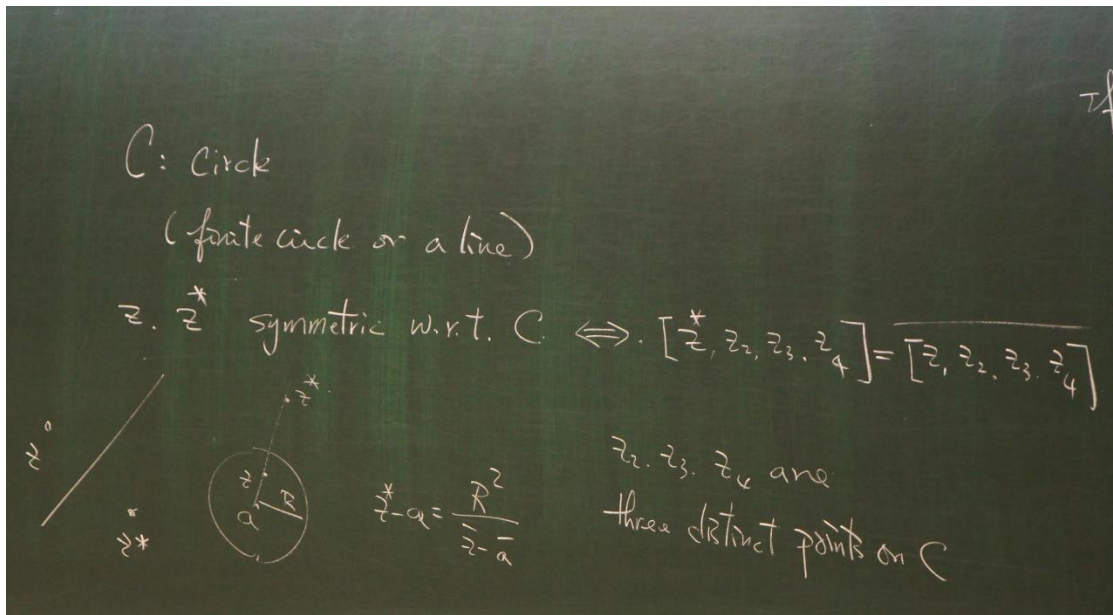 If
C: Circle
(finite circle or a line)
z. z* symmetric w.r.t. C ⇔. [z*, z₂, z₃. z₄] = \overline{[z, z₂, z₃. z₄]}
z
z*
z*
z
a
R
z*-a = R²/(\bar{z}-\bar{a})
z₂. z₃. z₄ are
three distinct points on C